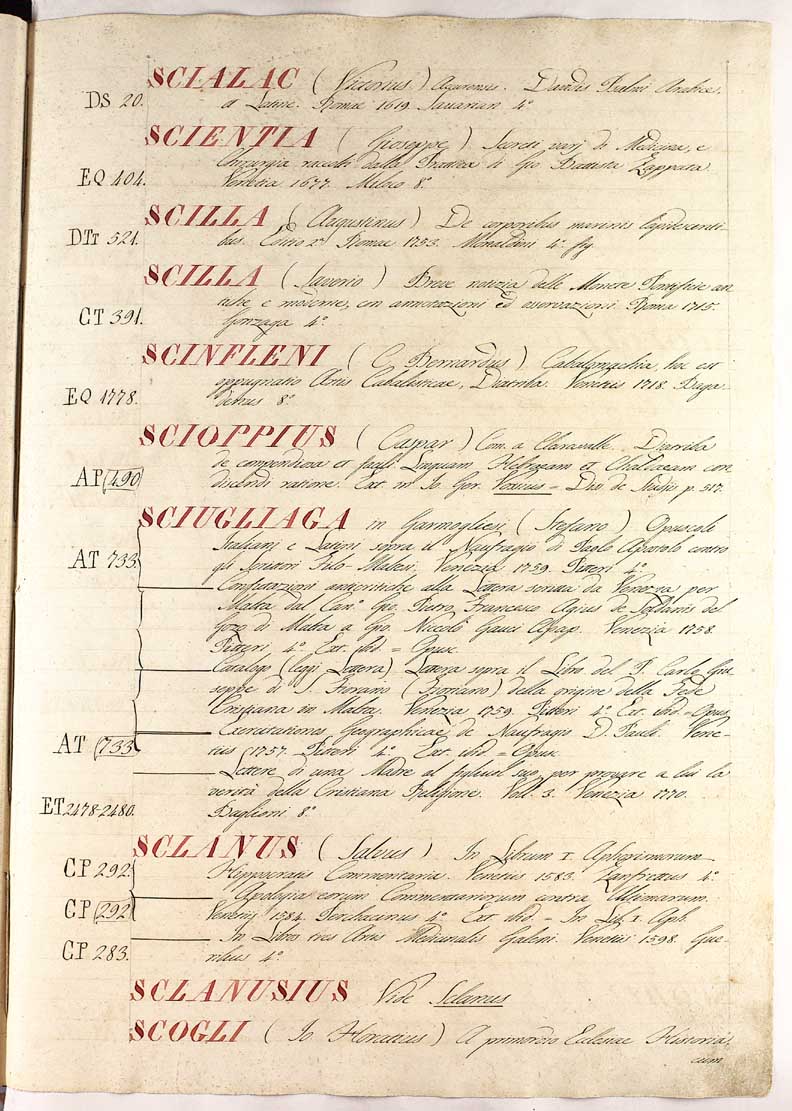 SCIALAC (Victorius) Acurensis. Davidis Psalmi Arabice
DS 20. et Latine. Romae 1619. Savarian 4.°
SCIENTIA (Gioseppe) Secreti varj di Medicina, e
Chirurgia raccolti dalla Prattica di Gio. Battista Zappata.
EQ 404. Venetia 1677. Miloco 8.°
SCILLA (Augustinus) De corporibus marinis lapidescenti
DTt 521. bus. Editio 2.ª Romae 1753. Monaldini 4.° fig.
SCILLA (Saverio) Breve notizia delle Monete Pontificie an
tiche e moderne, con annotazioni ed osservazioni. Roma 1715.
CT 391. Gonzaga 4.°
SCINFLENI (C. Bernardus) Cabalomachia, hoc est
oppugnatio Artis Cabalisticae, Diatriba. Venetiis 1718. Raga
EQ 1778. 8.°
SCIOPPIUS (Caspar) Com. a Claravalle. Diatriba
de compendiosa et facili Linguam Hebraeam et Chaldaeam con
AP 490 discendi ratione. Ext. in Jo. Ger. Vossius = Diss. de Studijs p. 517.
SCIUGLIAGA in Garmogliesi (Stefano) Opuscoli
Italiani e Latini sopra il Naufragio di Paolo Apostolo contro
AT 733. gli Scrittori Filo-Maltesi. Venezia 1759. Pitteri 4.°
——— Confutazioni anticritiche alla Lettera scritta da Venezia per
Malta dal Can.° Gio. Pietro Francesco Agius de Soldanis del
Gozo di Malta a Gio. Niccolò Gauci Aspap. Venezia 1758.
Pitteri 4.° Ext. ibid = Opusc.
——— Catalogo (leggi Lettera) Lettera sopra il Libro del P. Carlo Giu
seppe di S. Floriano (Floriano) della origine della Fede
Cristiana in Malta. Venezia 1759. Pitteri 4.° Ext. ibid = Opusc.
——— Exercitationes Geographicae de Naufragio D. Pauli. Vene-
AT 733 tiis 1757. Pitteri 4.° Ext. ibid = Opusc.
——— Lettere di una Madre al figliuol suo, per provare a lui la
verità della Cristiana Religione. Voll. 3. Venezia 1770.
ET 2478-2480. Baglioni 8.°
SCLANUS (Salvus) In Librum I. Aphorismorum
CP 292. Hippocratis Commentaria. Venetiis 1583. Zanfrettus 4.°
——— Apologia eorum Commentariorum contra
CP 292 Venetijs 1584. 4.° Ext. ibid = In Lib. I. Aph.
——— In Libros tres Artis Medicinalis Galeni. Venetiis 1598. Gue
CP 283. rilius 4.°
SCLANUSIUS Vide Sclanus
SCOGLI (Jo. Horatius) A primordio Ecclesiae Historia,
cum